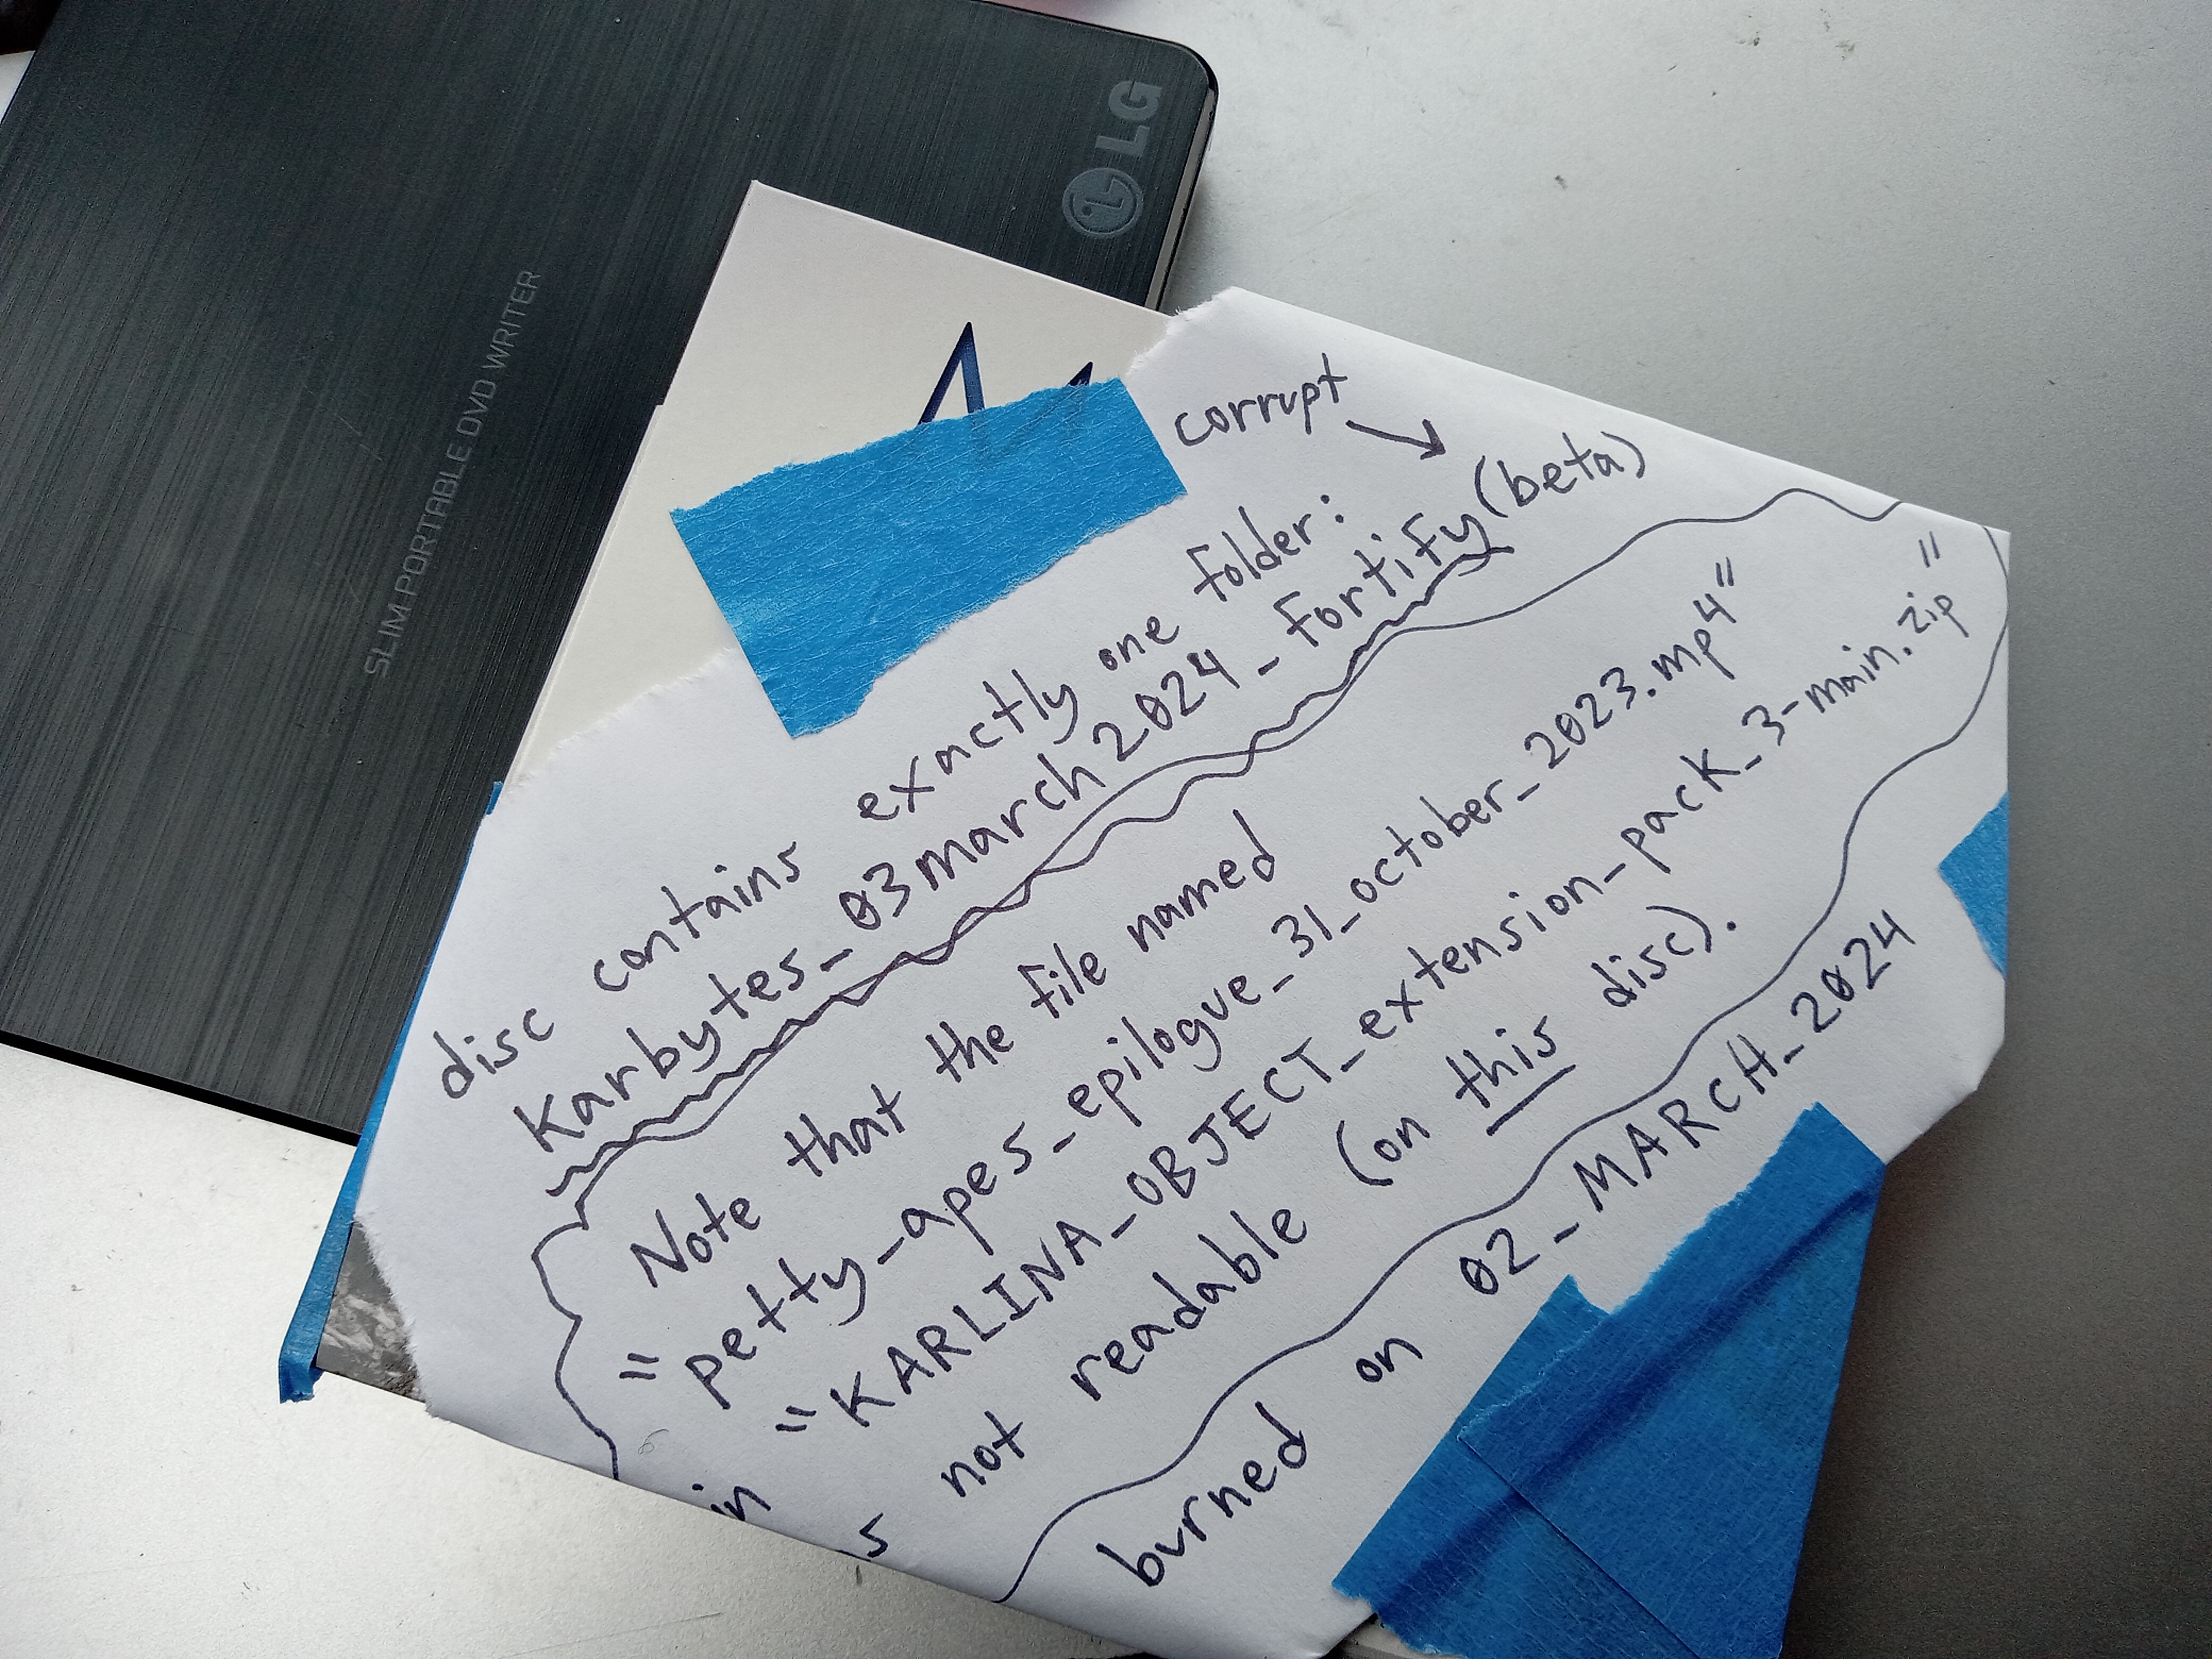 LG
SLIM PORTABLE DVD WRITER
corrupt →
disc contains exactly one folder:
Karbytes_03march2024_fortify(beta)
Note that the file named
"petty_apes_epilogue_31_october_2023.mp4"
in "KARLINA_OBJECT_extension-pack_3-main.zip"
not readable (on this disc).
burned on 02_MARCH_2024